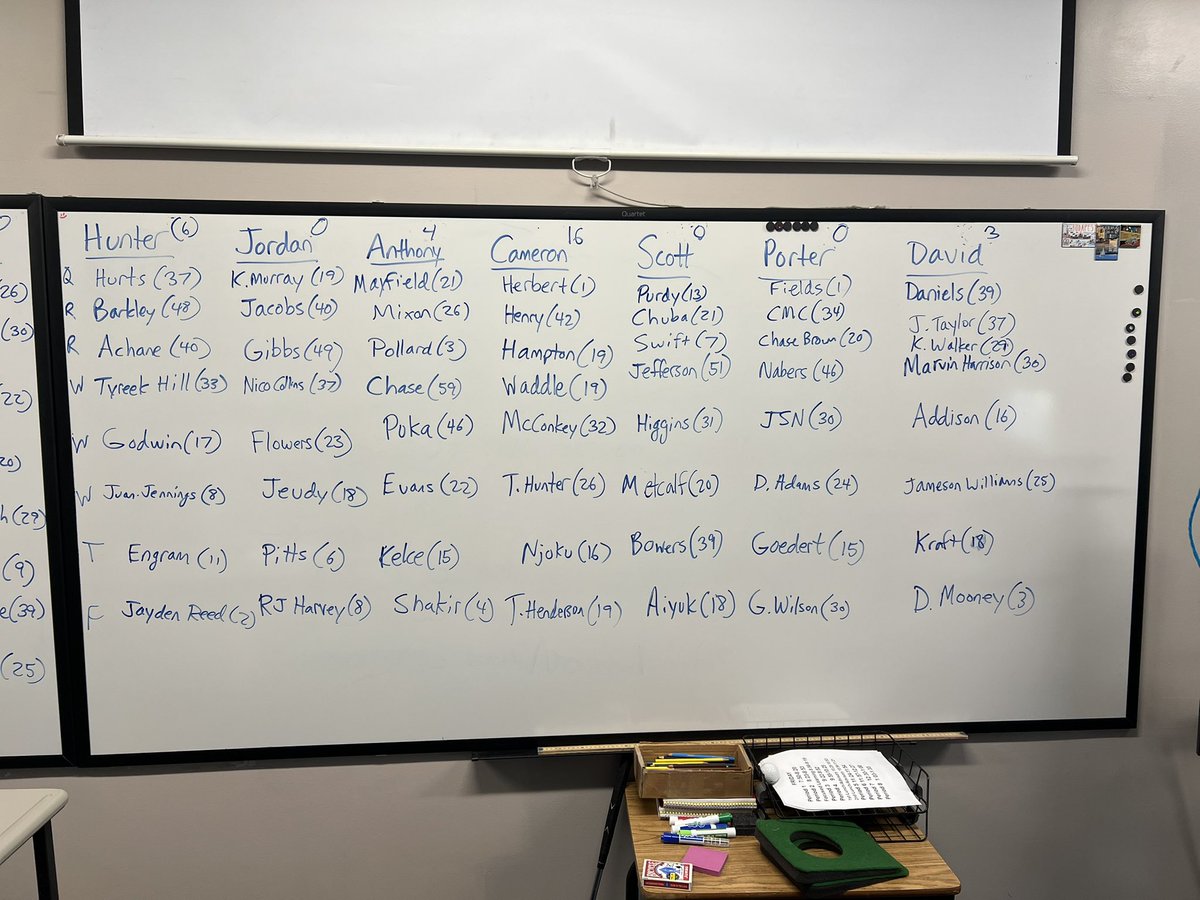 Quartet
Hunter (6) Jordan 0 Anthony 4 Cameron 16 Scott 0 Porter 0 David 3
Q Hurts (37) K. Murray (19) Mayfield (21) Herbert (1) Purdy (13) Fields (1) Daniels (39)
26)
R Barkley (48) Jacobs (40) Mixon (26) Henry (42) Chuba (21) CMC (34) J. Taylor (37)
(30)
R Achane (40) Gibbs (49) Pollard (3) Hampton (19) Swift (7) Chase Brown (20) K. Walker (29)
W Tyreek Hill (33) Nico Collins (37) Chase (59) Waddle (19) Jefferson (51) Nabers (46) Marvin Harrison (30)
22)
W Godwin (17) Flowers (23) Puka (46) McConkey (32) Higgins (31) JSN (30) Addison (16)
20)
W Juan Jennings (8) Jeudy (18) Evans (22) T. Hunter (26) Metcalf (20) D. Adams (24) Jameson Williams (25)
h (29)
T Engram (11) Pitts (6) Kelce (15) Njoku (16) Bowers (39) Goedert (15) Kraft (18)
(9)
F Jayden Reed (2) RJ Harvey (8) Shakir (4) T. Henderson (19) Aiyuk (18) G. Wilson (30) D. Mooney (3)
e (39)
(25)